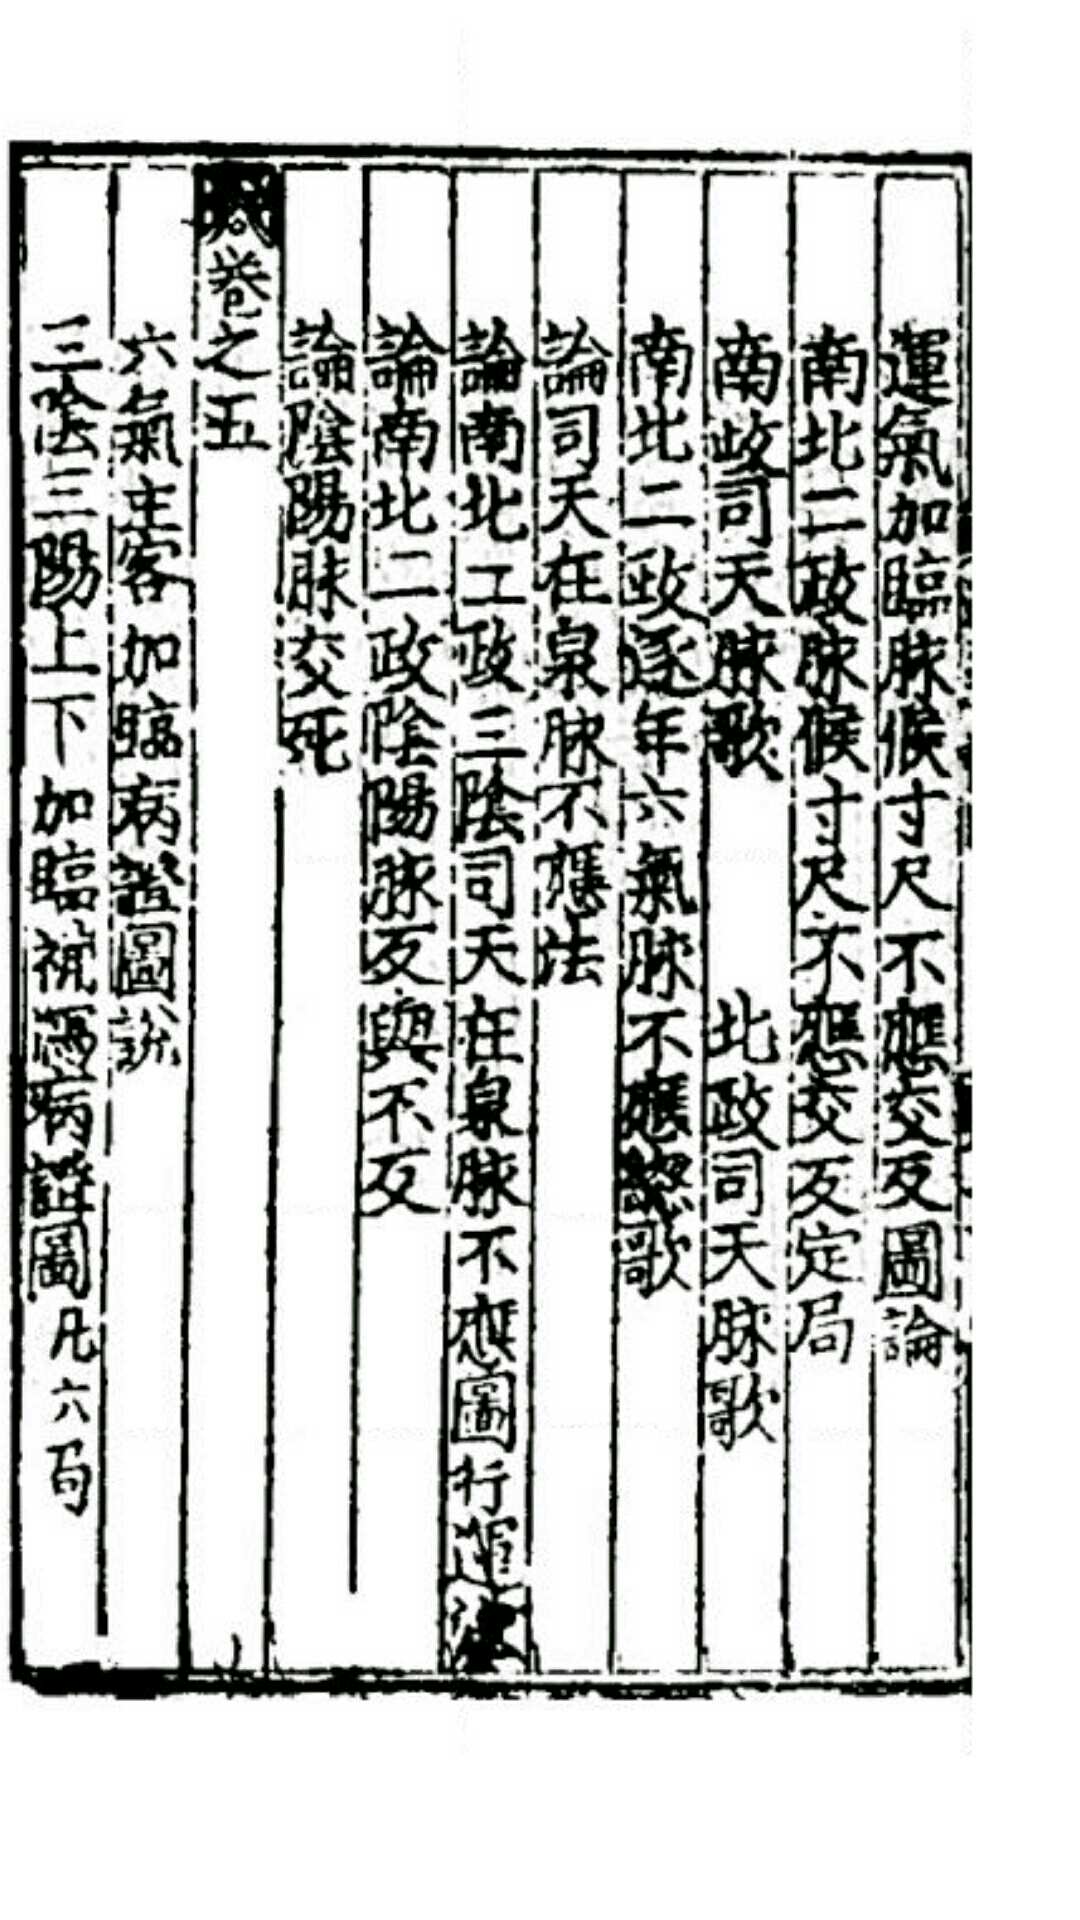 運氣加臨脉候寸尺不應交反圖論
南北二政脉候寸尺不應交反定局
南政司天脉歌 北政司天脉歌
南北二政逐年六氣脉不應總歌
論司天在泉脉不應法
論南北二政三陰司天在泉脉不應圖行運
論南北二政陰陽脉反與不反
論陰陽脉交死
卷之五
六氣主客加臨病證圖說
三陰三陽上下加臨病證圖凡六局